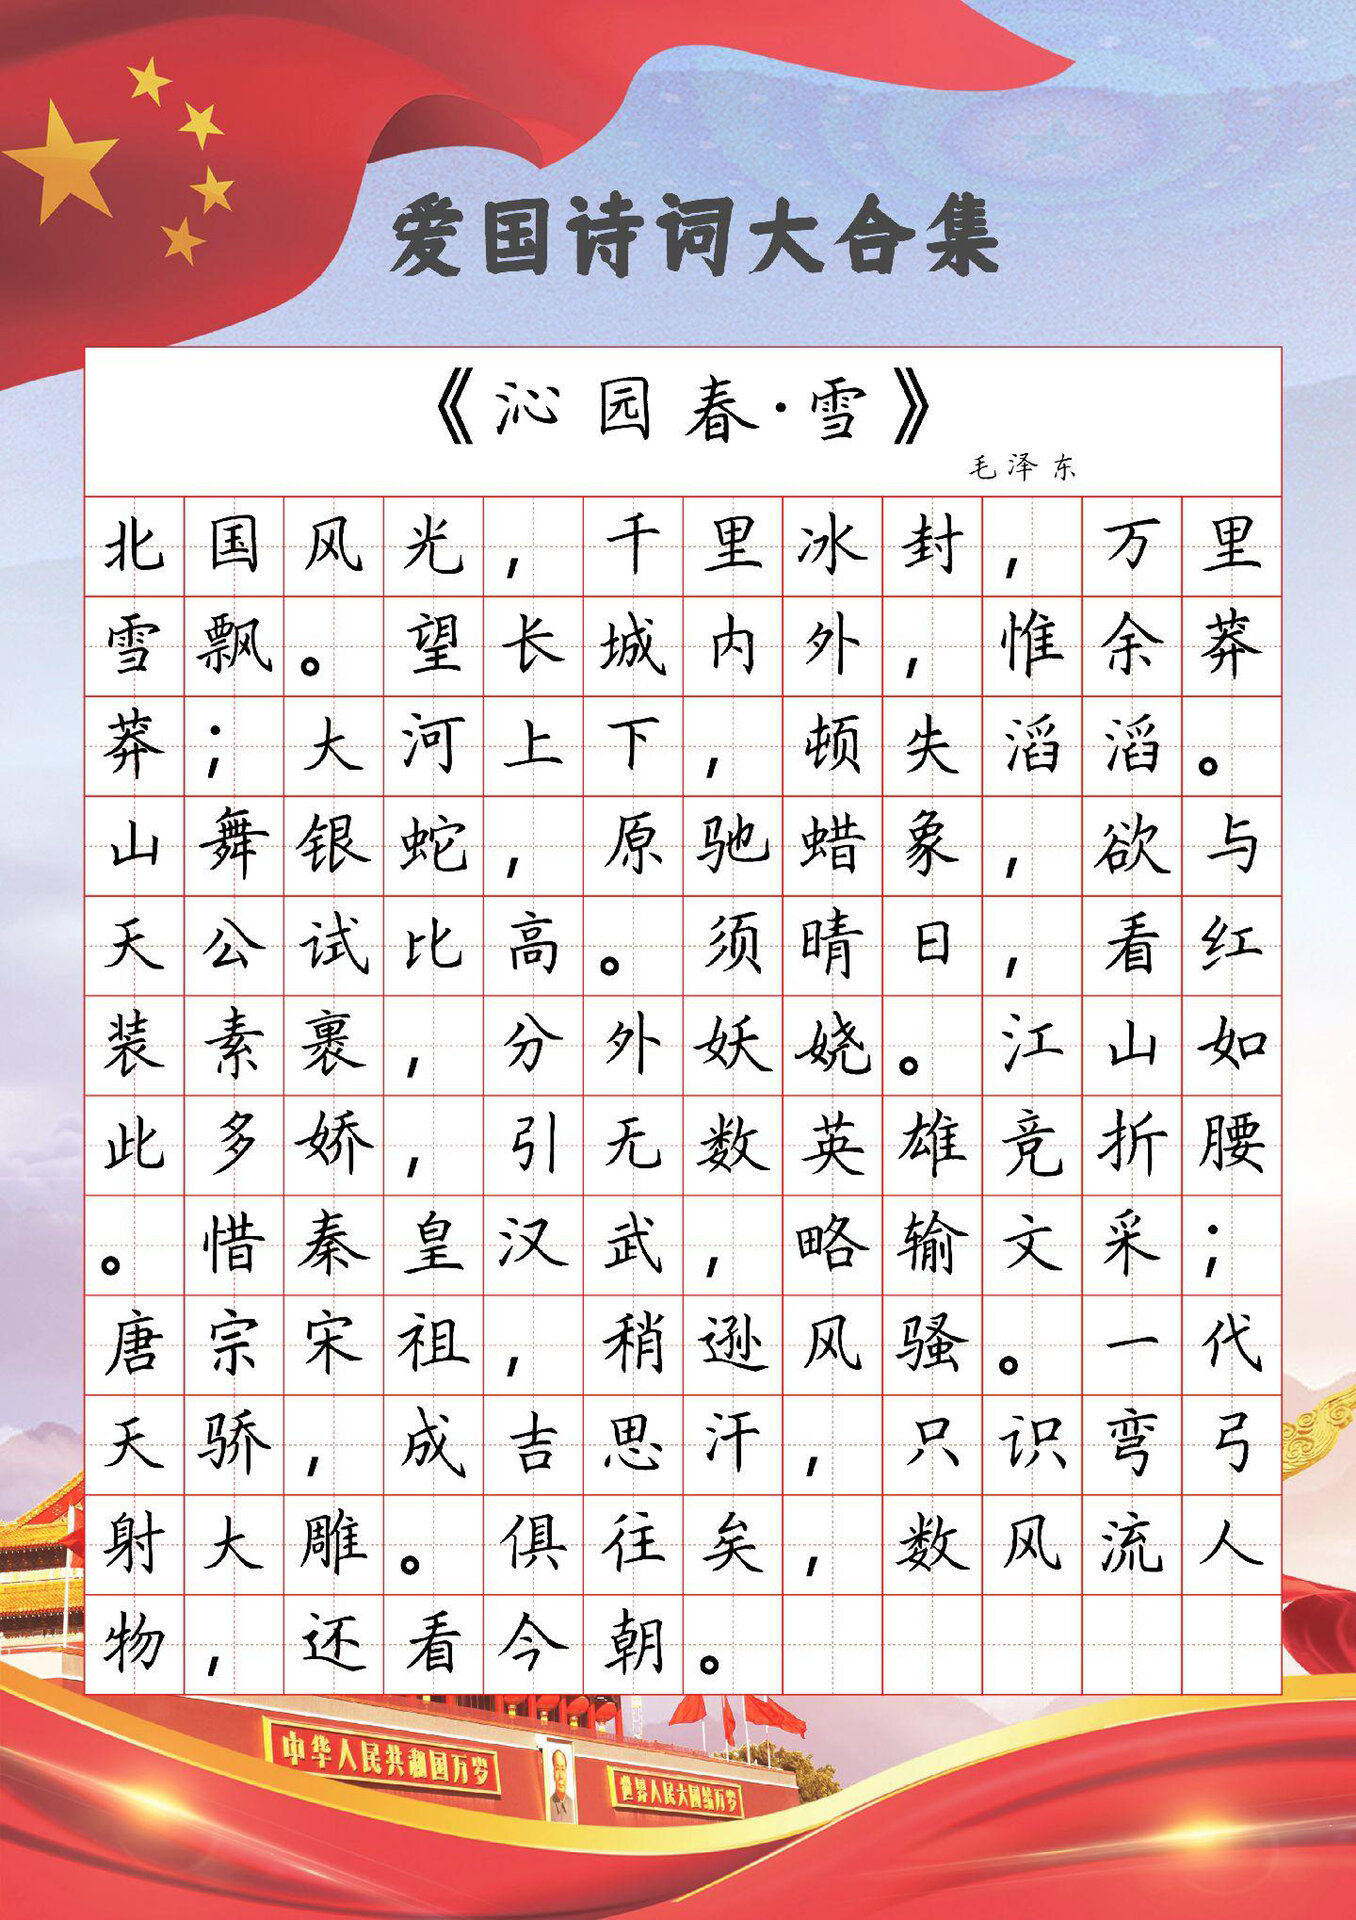 爱国诗词大合集
《沁园春·雪》
毛泽东
北国风光,千里冰封,万里
雪飘。望长城内外,惟余莽
莽;大河上下,顿失滔滔。
山舞银蛇,原驰蜡象,欲与
天公试比高。须晴日,看红
装素裹,分外妖娆。江山如
此多娇,引无数英雄竞折腰
。惜秦皇汉武,略输文采;
唐宗宋祖,稍逊风骚。一代
天骄,成吉思汗,只识弯弓
射大雕。俱往矣,数风流人
物,还看今朝。
中华人民共和国万岁
世界人民大团结万岁